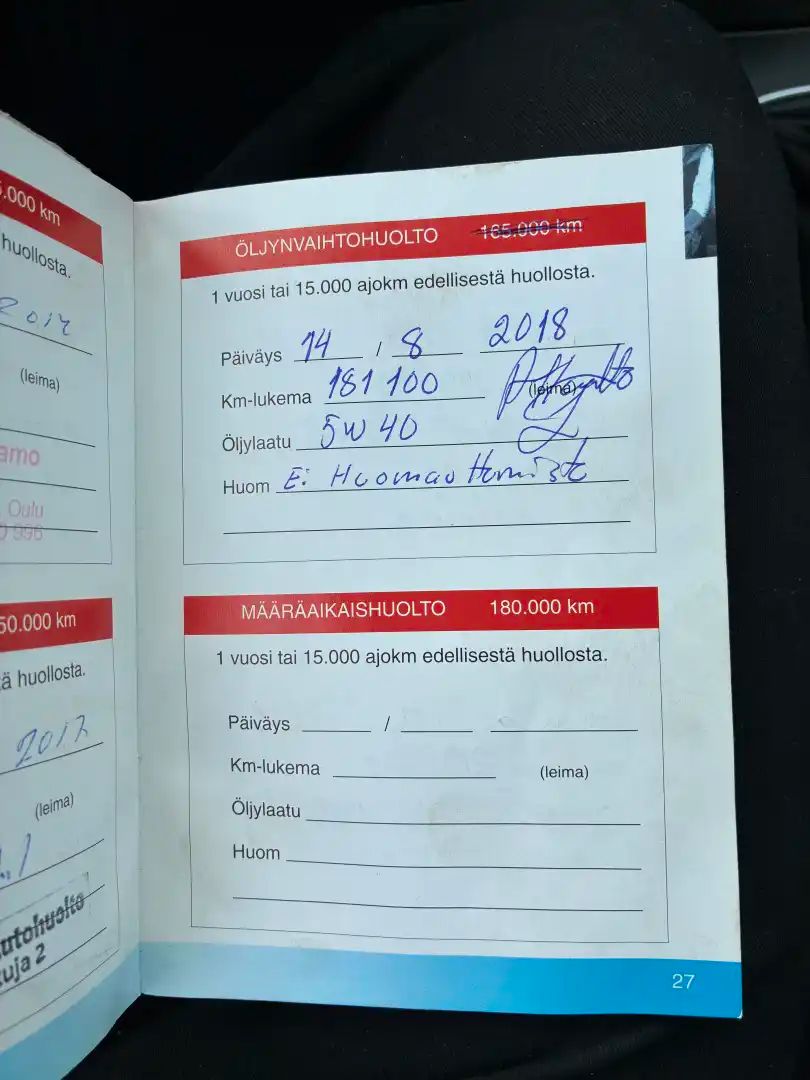 .000 km
huollosta.
2017
(leima)
amo
Oulu
996
50.000 km
ä huollosta.
2017
(leima)
utohuolto
kuja 2
ÖLJYNVAIHTOHUOLTO 165.000 km
1 vuosi tai 15.000 ajokm edellisestä huollosta.
Päiväys 14 / 8 2018
Km-lukema 181 100 (leima)
Öljylaatu 5W40
Huom Ei Huomautta­mista
MÄÄRÄAIKAISHUOLTO 180.000 km
1 vuosi tai 15.000 ajokm edellisestä huollosta.
Päiväys /
Km-lukema (leima)
Öljylaatu
Huom
27